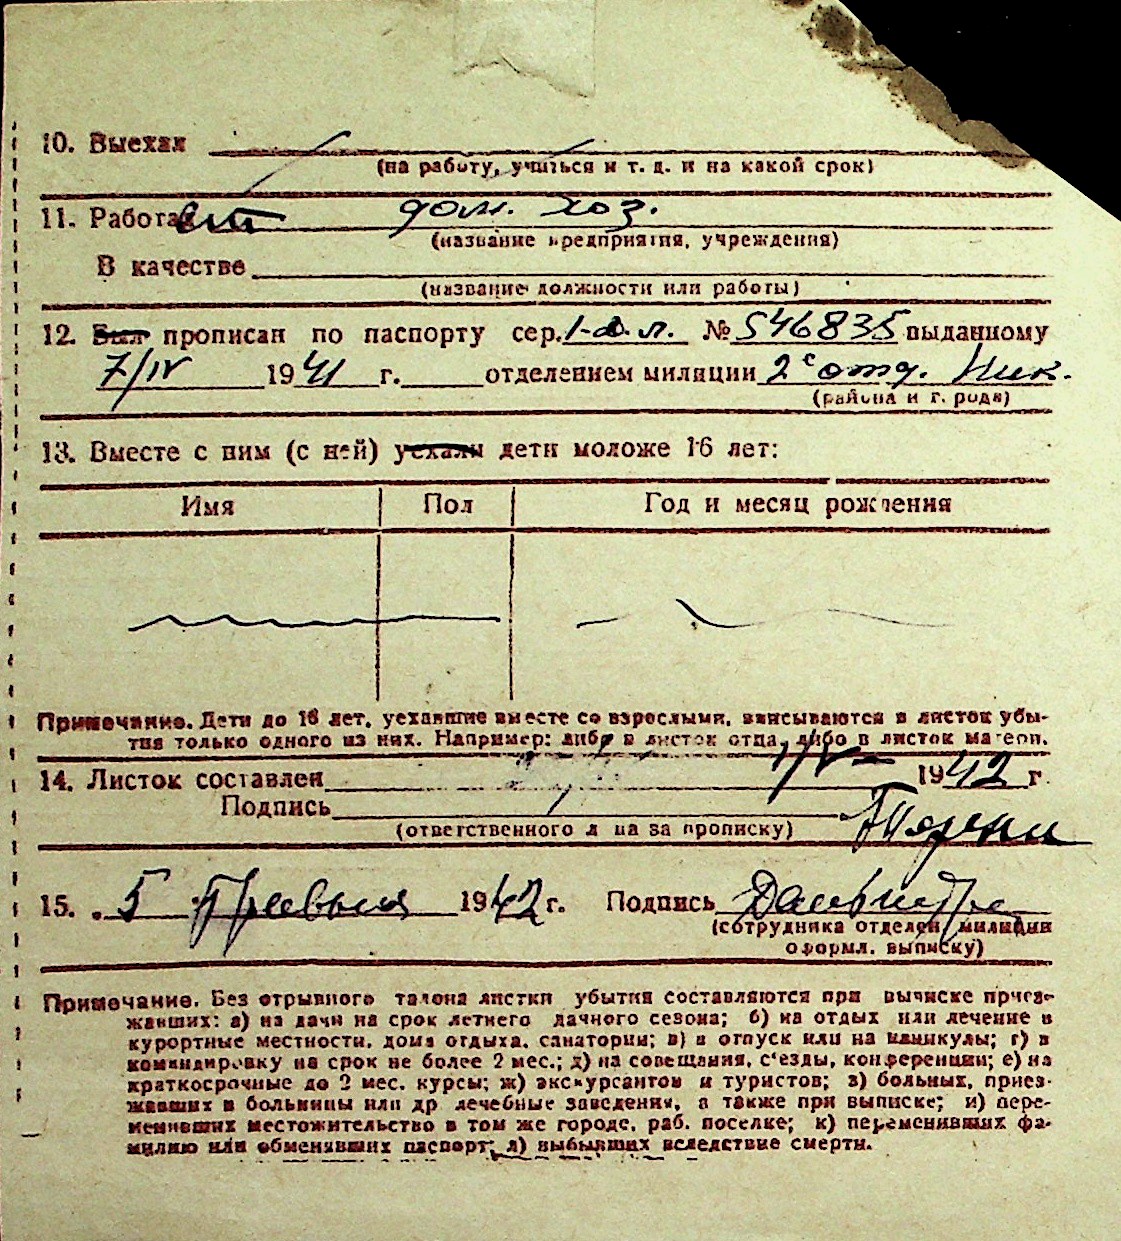 10. Выехал
(на работу, учиться и т. д. и на какой срок)
11. Работает дом. хоз.
(название предприятия, учреждения)
В качестве
(название должности или работы)
12. Был прописан по паспорту сер. № 546835 выданному
7/IV 1941 г. отделением милиции 2е отд. Ник.
(района и г. рода)
13. Вместе с ним (с ней) уехали дети моложе 16 лет:
Имя Пол Год и месяц рождения
Примечание. Дети до 16 лет, уехавшие вместе со взрослыми, вписываются в листок убы-
тия только одного из них. Например: либо в листок отца, либо в листок матери.
14. Листок составлен 1/V 1942 г.
Подпись
(ответственного лица за прописку)
15. 5 Травня 1942 г. Подпись
(сотрудника отделен. милиции
оформл. выписку)
Примечание. Без отрывного талона листки убытия составляются при выписке приез-
жавших: а) на дачи на срок летнего дачного сезона; б) на отдых или лечение в
курортные местности, дома отдыха, санатории; в) в отпуск или на каникулы; г) в
командировку на срок не более 2 мес.; д) на совещания, с'езды, конференции; е) на
краткосрочные до 2 мес. курсы; ж) экскурсантов и туристов; з) больных, приез-
жавших в больницы или др лечебные заведения, а также при выписке; и) пере-
менивших местожительство в том же городе, раб. поселке; к) переменивших фа-
милию или обменявших паспорт; л) выбывших вследствие смерти.